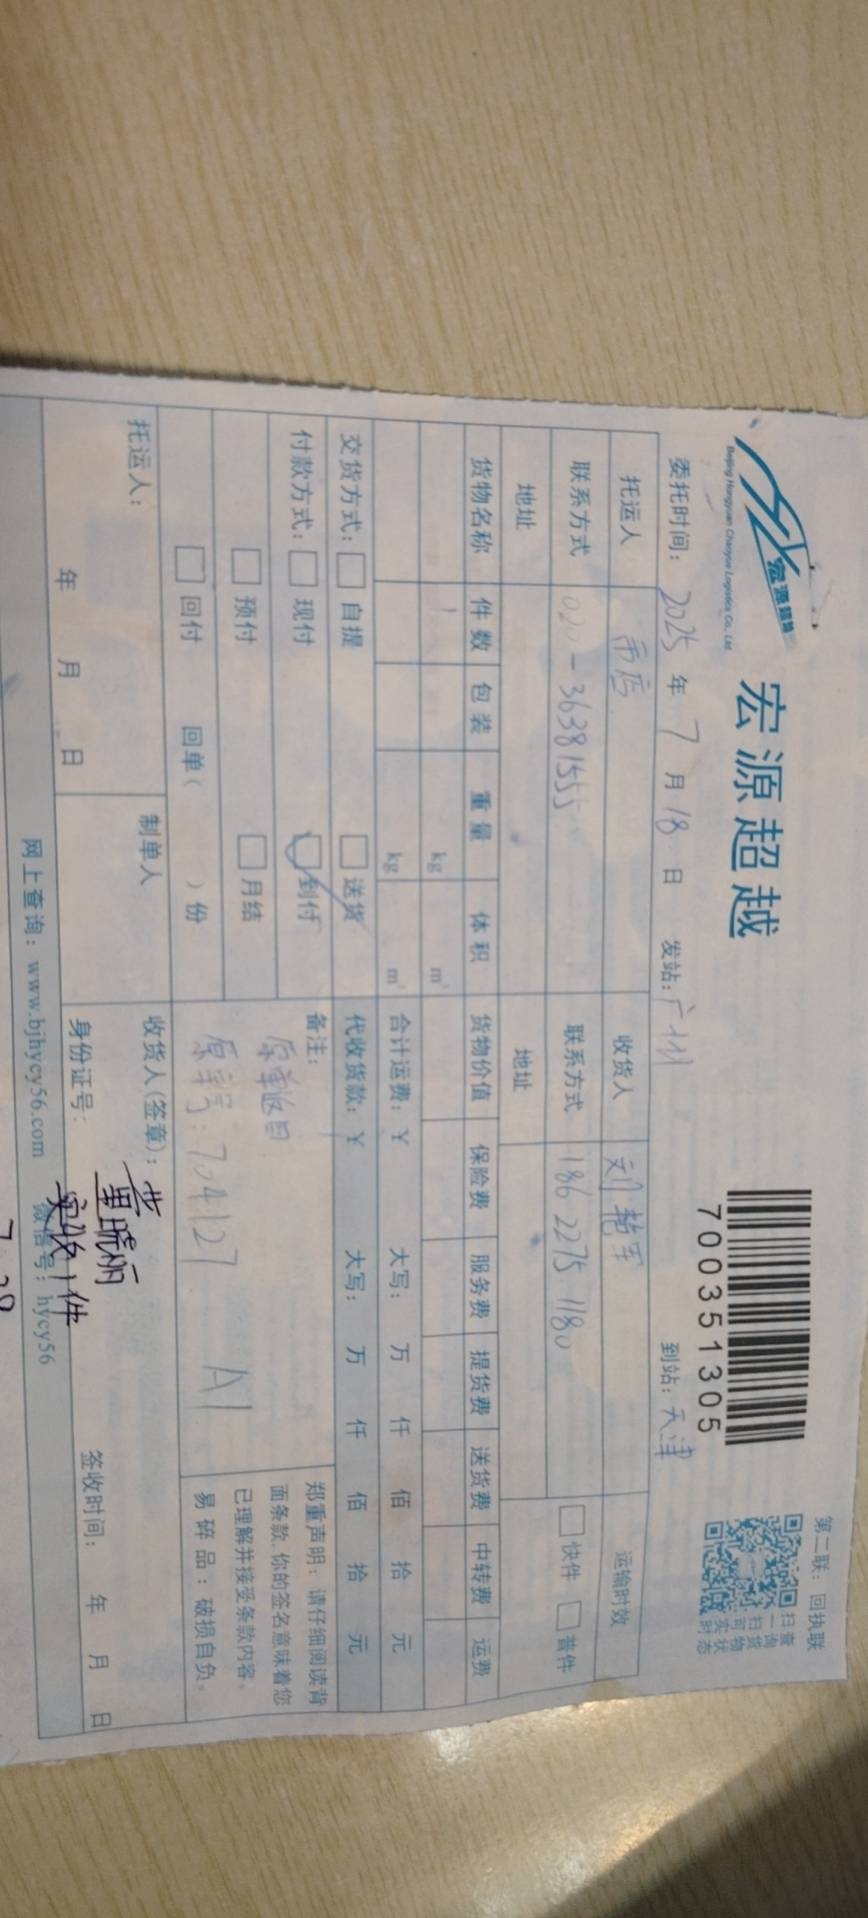 宏源超越
Beijing Hongyuan Chaoyue Logistics Co., Ltd.
宏源超越
700351305
第二联：回执联
扫一扫可实时
查询货物状态
委托时间：2025年7月18日 发站：广州 到站：天津
托运人 收货人 刘艳军 运输时效
联系方式 020-36381555 联系方式 186 2275 1180 快件 普件
地址 地址
货物名称 件数 包装 重量 体积 货物价值 保险费 服务费 提货费 送货费 中转费 运费
1 kg m³
kg m³ 合计运费：¥ 大写： 万 仟 佰 拾 元
交货方式： 自提 送货 代收货款：¥ 大写： 万 仟 佰 拾 元
付款方式： 现付 到付
预付 月结
回付 回单（ ）份
备注：
原单返回
原单号：704127 A1
郑重声明：请仔细阅读背
面条款，你的签名意味着您
已理解并接受条款内容。
易碎品：破损自负。
托运人： 制单人 收货人(签章)： 黄晓丽
年 月 日 身份证号： 签收时间： 年 月 日
实收1件
网上查询：www.bjhycy56.com 微信号：hycy56